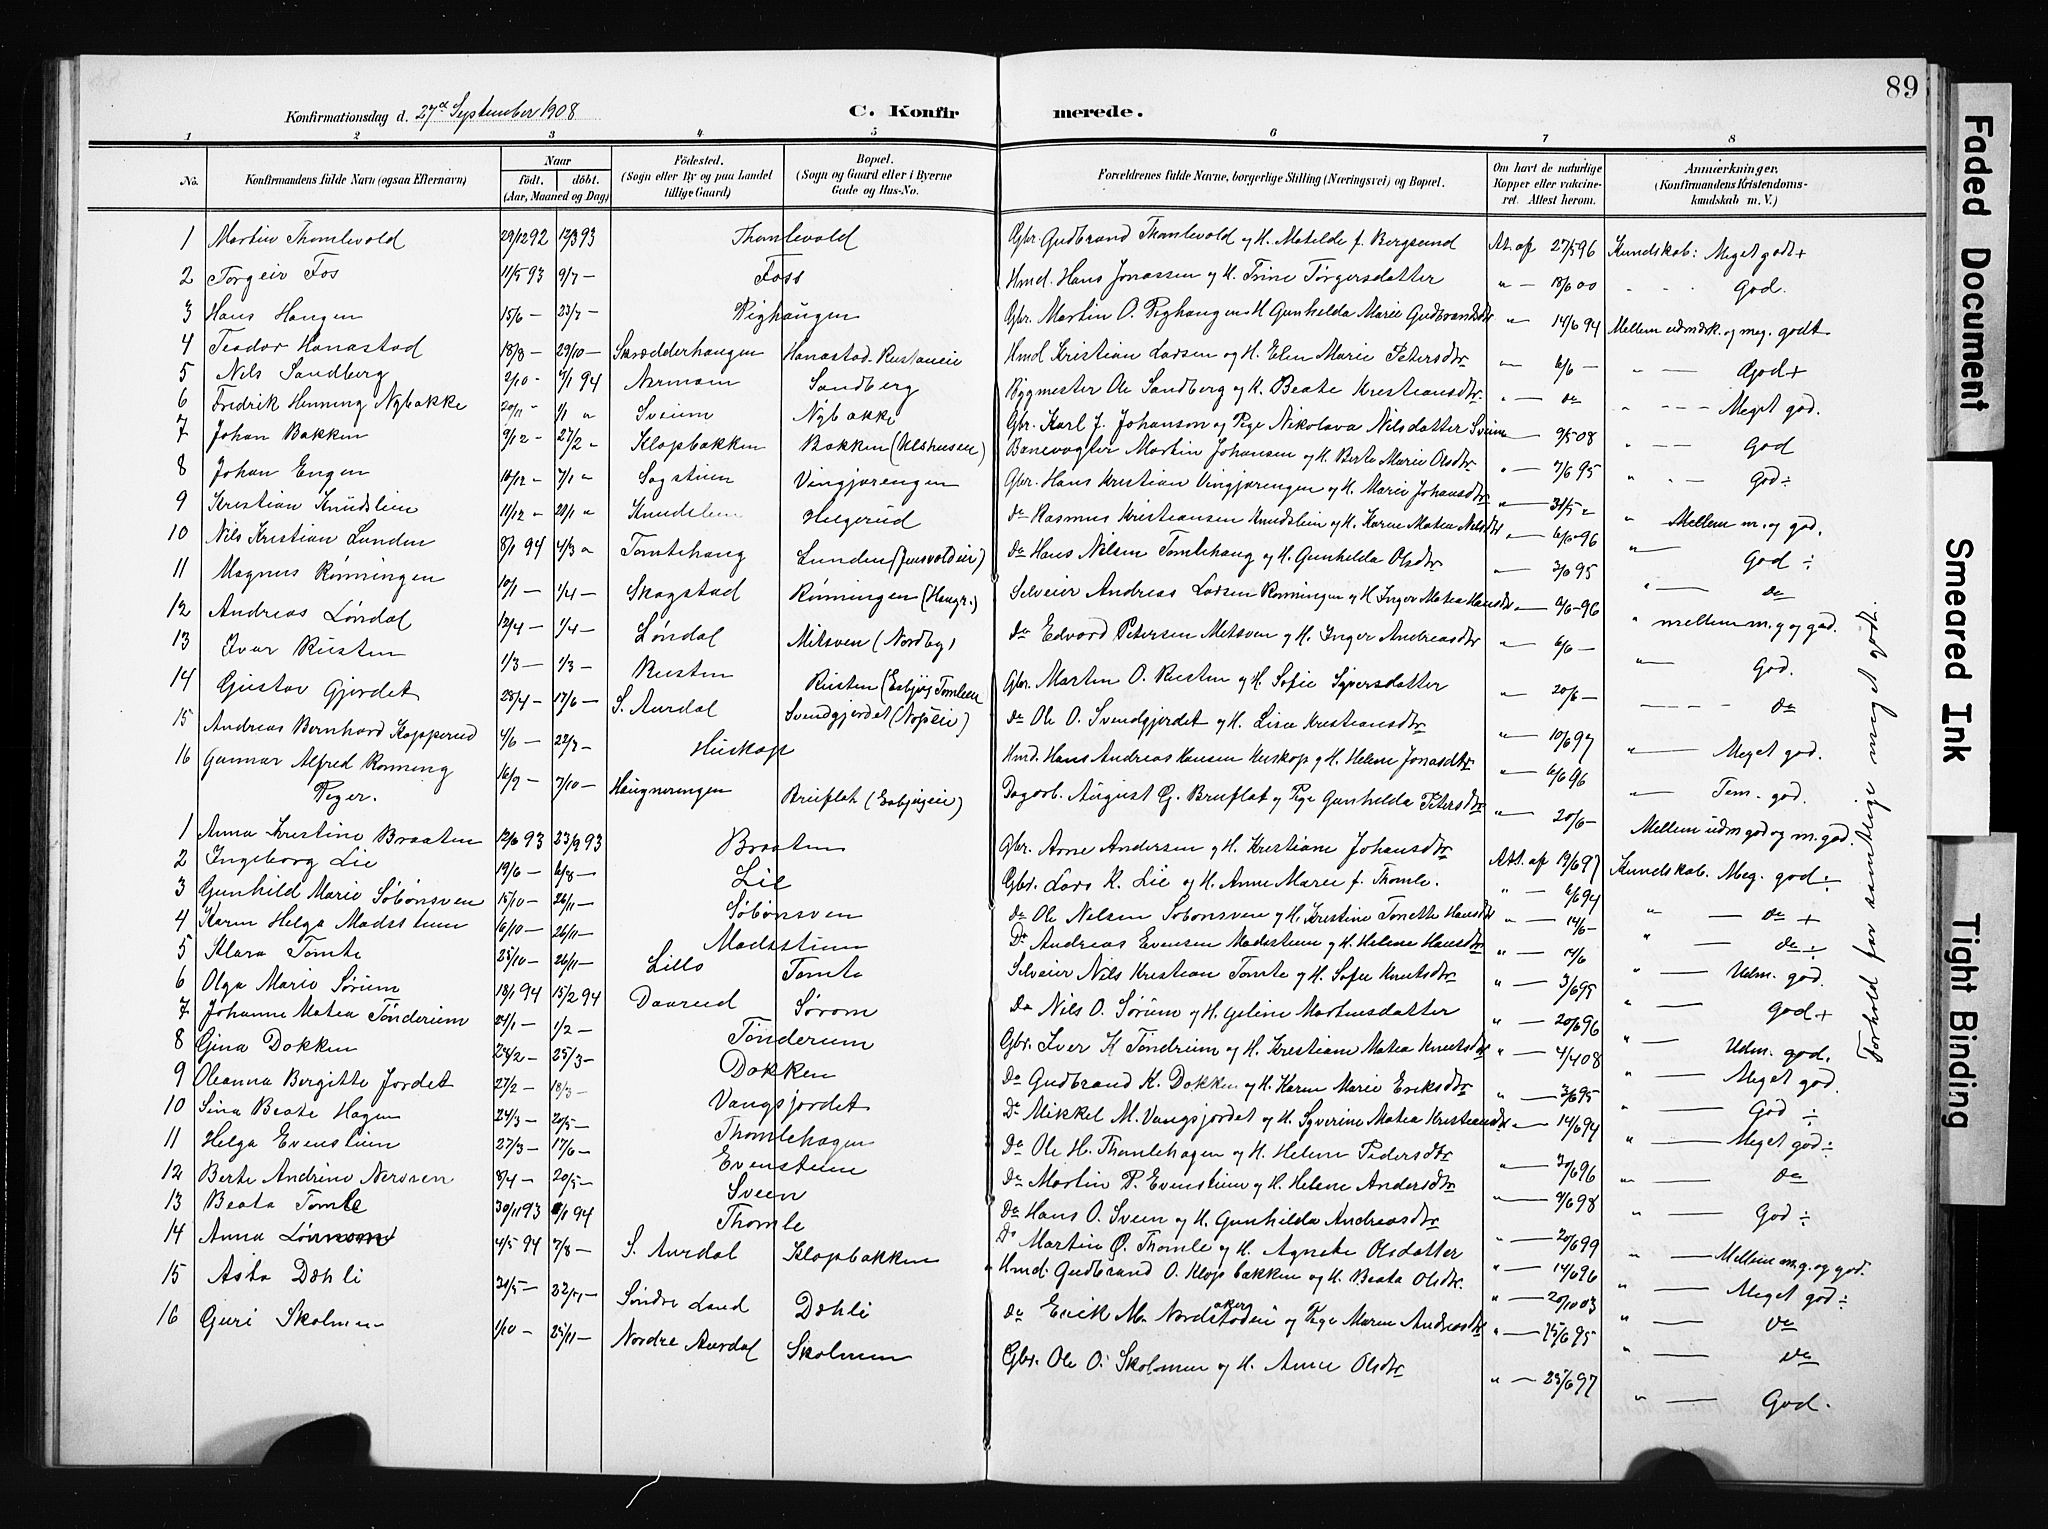 89
Konfirmationsdag d. 27de September 1908 C. Konfirmerede.
1 2 3 4 5 6 7 8
No. Konfirmandens fulde Navn (ogsaa Efternavn) Naar født. døbt. (Aar, Maaned og Dag) Fødested. (Sogn eller By og paa Landet tillige Gaard) Bopæl. (Sogn og Gaard eller i Byerne Gade og Hus-No. Forældrenes fulde Navne, borgerlige Stilling (Næringsvei) og Bopæl. Om havt de naturlige Kopper eller vakcineret. Attest herom. Anmærkninger. (Konfirmandens Kristendomskundskab m. V.)
1 Martin Thomlevold 29/12 92 12/3 93 Thomlevold Gbr. Gudbrand Thomlevold og H. Matilde f. Bergsund At. af 27/5 96 Kundskab: Meget godt +
2 Torgeir Fos 11/5 93 9/7 — Foss Hmd. Hans Jonassen og H. Trine Torgersdatter " — 18/6 00 " - - God.
3 Hans Haugen 15/6 — 23/7 — Pighaugen Gbr. Martin O. Pighaugen H Gunhilda Marie Gudbrandsdtr " 14/6 94 Mellem udmærk. og meg. godt
4 Teodor Hanastad 18/8 — 29/10 — Skrædderhaugen Hanastad-Rustaneie Hmd Kristian Larsen og H. Elen Marie Petersdtr " 6/6 — " — God +
5 Nils Sandberg 2/10 - 7/1 94 Nermom Sandberg Bygmester Ole Sandberg og H. Beate Kristiansdtr. " — do " - - - Meget god.
6 Fredrik Henning Nybakke 20/11 — 1/1 " Sveum Nybakke Gbr. Karl J. Johanson og Pige Nikolava Nilsdatter Sveum — 9/5 08 " — God
7 Johan Bakken 9/12 — 27/2 " Klopbakken Bakken (Ulshusen) Banevogter Martin Johansen og H. Berte Marie Olsdtr " — 7/6 95 " - — God ÷
8 Johan Engen 10/12 — 7/1 " Sagstuen Vingjarengen Gbr. Hans Kristian Vingjarengen og H. Marie Johansdtr — 31/5 " " Mellem m. og god.
9 Kristian Knudslien 11/12 " 28/1 " Knudslien Helgerud do Rasmus Kristiansen Knudslein og H. Karne Matea Nilsdtr — 6/6 96 " God ÷
10 Nils Kristian Lunden 8/1 94 4/3 " Tomtehaug Lunden (Junsvoldeier) do Hans Nilsen Tomtehaug og H. Gunhilda Olsdtr " — 3/6 95 " — do
11 Magnus Rønningen 10/1 — 1/4 — Skogstad Rønningen (Haugr.) Selveier Andreas Larsen Rønningen og H Inger Matea Hansdtr — 6/6 96 " mellem m. g og god.
12 Andreas Løndal 12/4 — 1/4 — Løndal Mitsven (Nordby) do Edvard Petersen Metsven og H. Inger Andreasdtr " — 6/6 — " — God.
13 Ivar Rusten 1/3 — 1/3 — Rusten Rusten (Esbjug Tomleeie Gbr. Martin O. Rusten og H. Sofie Syversdatter " — 20/6 — - - - - do
14 Gustav Gjerdet 28/4 — 17/6 — S. Aurdal Svendgjerdet (Nøseie) do Ole O. Svendgjerdet og H. Lise Kristiansdtr. " — 10/6 97 " — Meget god.
15 Andreas Bernhard Kopperud 4/6 — 22/7 — Huskop Hmd. Hans Andreas Hansen Huskop og H. Helene Jonasdtr " — 6/6 96 " — Tem. god.
16 Gunnar Alfred Rønning 16/9 — 7/10 — Haugnerengen Bruflat (Esbjugeie) Dagarb. August G. Bruflat og Pige Gunhilda Petersdtr " — 20/6 — Mellem udm god og m. god.
Piger.
1 Anna Kristine Braaten 12/6 93 23/9 93 Braaten Gbr. Arne Andersen og H. Kristiane Johansdtr. Att. af 19/6 97 Kundskab. Meg. god ÷
2 Ingeborg Lie 19/6 — 6/8 — Lie Gbr. Lars K. Lie og H. Anne Marie f. Thomle. " - 6/6 94 " — do +
3 Gunhild Marie Søbønsven 15/10 — 26/11 — Søbønsven do Ole Nelsen Søbønsven og H. Kristine Tonette Hansdtr " — 14/6 — " — do ÷
4 Karen Helga Madsstuen 16/10 — 26/11 — Madsstuen Do Andreas Evensen Madsstuen og H. Helene Hansdtr " — 14/6 " — Udm. god.
5 Klara Tomte 25/10 — 26/11 — Lillo Tomte Selveier Nils Kristian Tomte og H. Sofie Knutsdtr " — 3/6 95 " — God +
6 Olga Marie Sørum 18/1 94 15/2 94 Daarud Sørom Do Nils O. Sørum og H. Geline Martinusdatter " — 20/6 96 " — Udm. god.
7 Johanne Matea Tønderum 21/1 — 1/2 — Tønderum Gbr. Iver K Tøndrum og H. Kristiane Matea Knutsdtr " — 4/4 08 " — Meget god.
8 Gina Dokken 24/2 — 25/3 — Dokken Do Gudbrand K. Dokken og H. Karen Marie Eriksdtr " — 3/6 95 " — God ÷
9 Oleanna Bergitte Jordet 27/2 — 18/3 — Vangsjordet Do Mikkel M. Vangsjordet og H. Syverine Matea Kristiansdtr " — 14/6 94 " — Meget god ÷
10 Sina Beate Hagen 24/3 — 20/5 — Thomlehagen Do Ole H. Thomlehagen og H. Helene Pedersdtr " — 30/6 96 " — do
11 Helga Evenstuen 27/3 — 17/6 — Evenstuen Do Martin P. Evenstuen og H. Helene Andersdtr " — 4/6 98 " — God ÷
12 Berte Andrine Nersven 8/4 — 20/5 — Sveen Do Hans O. Sveen og H. Gunhilda Andreasdtr " — 20/6 99 " — Mellem m. g. og god.
13 Beata Tomle 30/11 93 1/1 94 Thomle Do Martin O. Thomle og H. Agnete Olsdatter " — 14/6 96 " — Meget god ÷
14 Anna 4/5 94 7/8 — S. Aurdal Klopbakken Hmd. Gudbrand O. Klopbakken og H. Beata Olsdtr. " — 20/10 03 " — do
15 Asta Dæhli 30/5 — 22/7 — Søndre Land Dæhli Do Erick M. Nordstadeie og Pige Maren Andreasdtr " — 15/6 95 " — do
16 Guri Skolmen 1/10 — 25/11 — Nordre Aurdal Skolmen Gbr. Ole O. Skolmen og H. Anne Olsdtr " — 25/6 97 " — God.
Forhold for samtlige meget godt.
Faded Document
Smeared Ink
Tight Binding